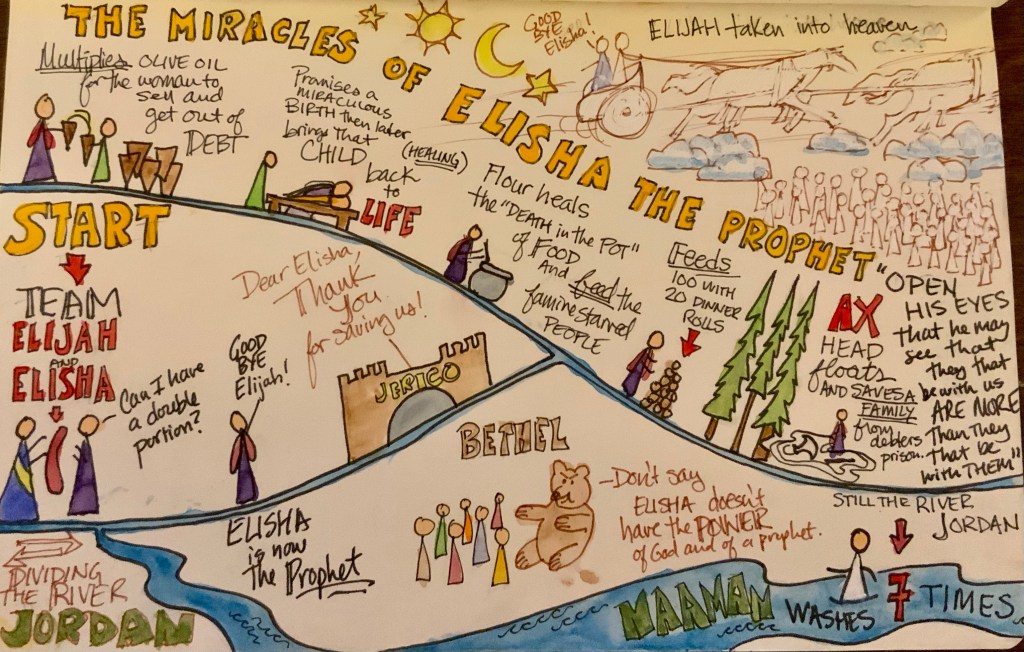 THE MIRACLES OF ELISHA THE PROPHET
GOOD
BYE
Elisha!
ELIJAH taken into heaven
Multiplies OLIVE OIL
for the woman to
sell and
get out of
DEBT
Promises a
MIRACULOUS
BIRTH then later
brings that
CHILD
(HEALING)
back
to
LIFE
Flour heals
the "DEATH in the POT"
of FOOD
And feed the
famine starved
PEOPLE
Feeds
100 WITH
20 DINNER
ROLLS
AX
HEAD
floats
AND SAVES A
FAMILY
from
debters
prison.
"OPEN
HIS EYES
that he may
see that
they that
be with us
ARE MORE
Than They
That be
with THEM"
START
TEAM
ELIJAH
AND
ELISHA
Can I have
a double
portion?
GOOD
BYE
Elijah!
Dear Elisha,
Thank
you
for saving us!
JERICO
BETHEL
ELISHA
is now
The Prophet
-Don't say
ELISHA doesn't
have the POWER
of God and of a prophet.
DIVIDING
THE RIVER
JORDAN
STILL THE RIVER
JORDAN
NAAMAN
WASHES
7 TIMES